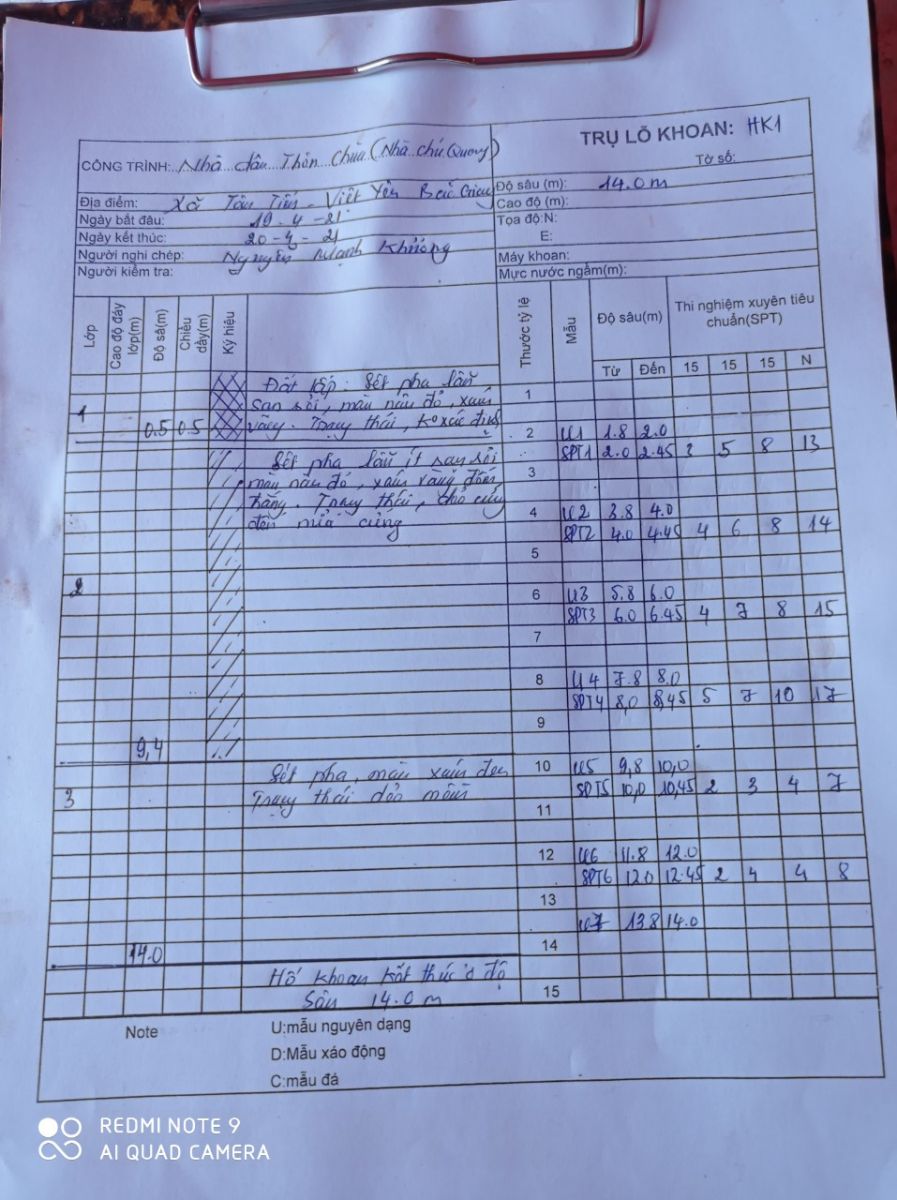 TRỤ LỖ KHOAN: HK1
CÔNG TRÌNH: Nhà dân Thôn Chùa (Nhà chú Quang)
Tờ số:
Địa điểm: Xã Tân Tiến - Việt Yên Bắc Giang
Độ sâu (m): 14.0m
Cao độ (m):
Ngày bắt đâu: 19-4-21
Tọa độ:N:
Ngày kết thúc: 20-4-21
E:
Người nghi chép: Nguyễn Mạnh
Máy khoan:
Người kiểm tra:
Mực nước ngầm(m):
Lớp Cao độ đáy lớp(m) Độ sâ(m) Chiều dầy(m) Ký hiệu Thước tỷ lệ Mẫu Độ sâu(m) Thi nghiệm xuyên tiêu chuẩn(SPT)
Từ Đến 15 15 15 N
Đất lấp: Sét pha lẫn 1
1 sạn sỏi, màu nâu đỏ, xám
0.5 0.5 vàng. Trạng thái, ko xác định 2 U1 1.8 2.0
SPT1 2.0 2.45 3 5 8 13
Sét pha lẫn ít sạn sỏi 3
màu nâu đỏ, xám vàng đốm
trắng. Trạng thái, dẻo cứng 4 U2 3.8 4.0
đến nửa cứng SPT2 4.0 4.45 4 6 8 14
5
2 6 U3 5.8 6.0
SPT3 6.0 6.45 4 7 8 15
7
8 U4 7.8 8.0
SPT4 8,0 8,45 5 7 10 17
9
9,4
Sét pha, màu xám đen 10 U5 9,8 10,0
3 Trạng thái dẻo mềm SPT5 10,0 10,45 2 3 4 7
11
12 U6 11.8 12.0
SPT6 12.0 12.45 2 4 4 8
13
U7 13.8 14.0
14.0 14
Hố khoan kết thúc ở độ
sâu 14.0 m 15
Note U:mẫu nguyên dạng
D:Mẫu xáo động
C:mẫu đá
REDMI NOTE 9
AI QUAD CAMERA